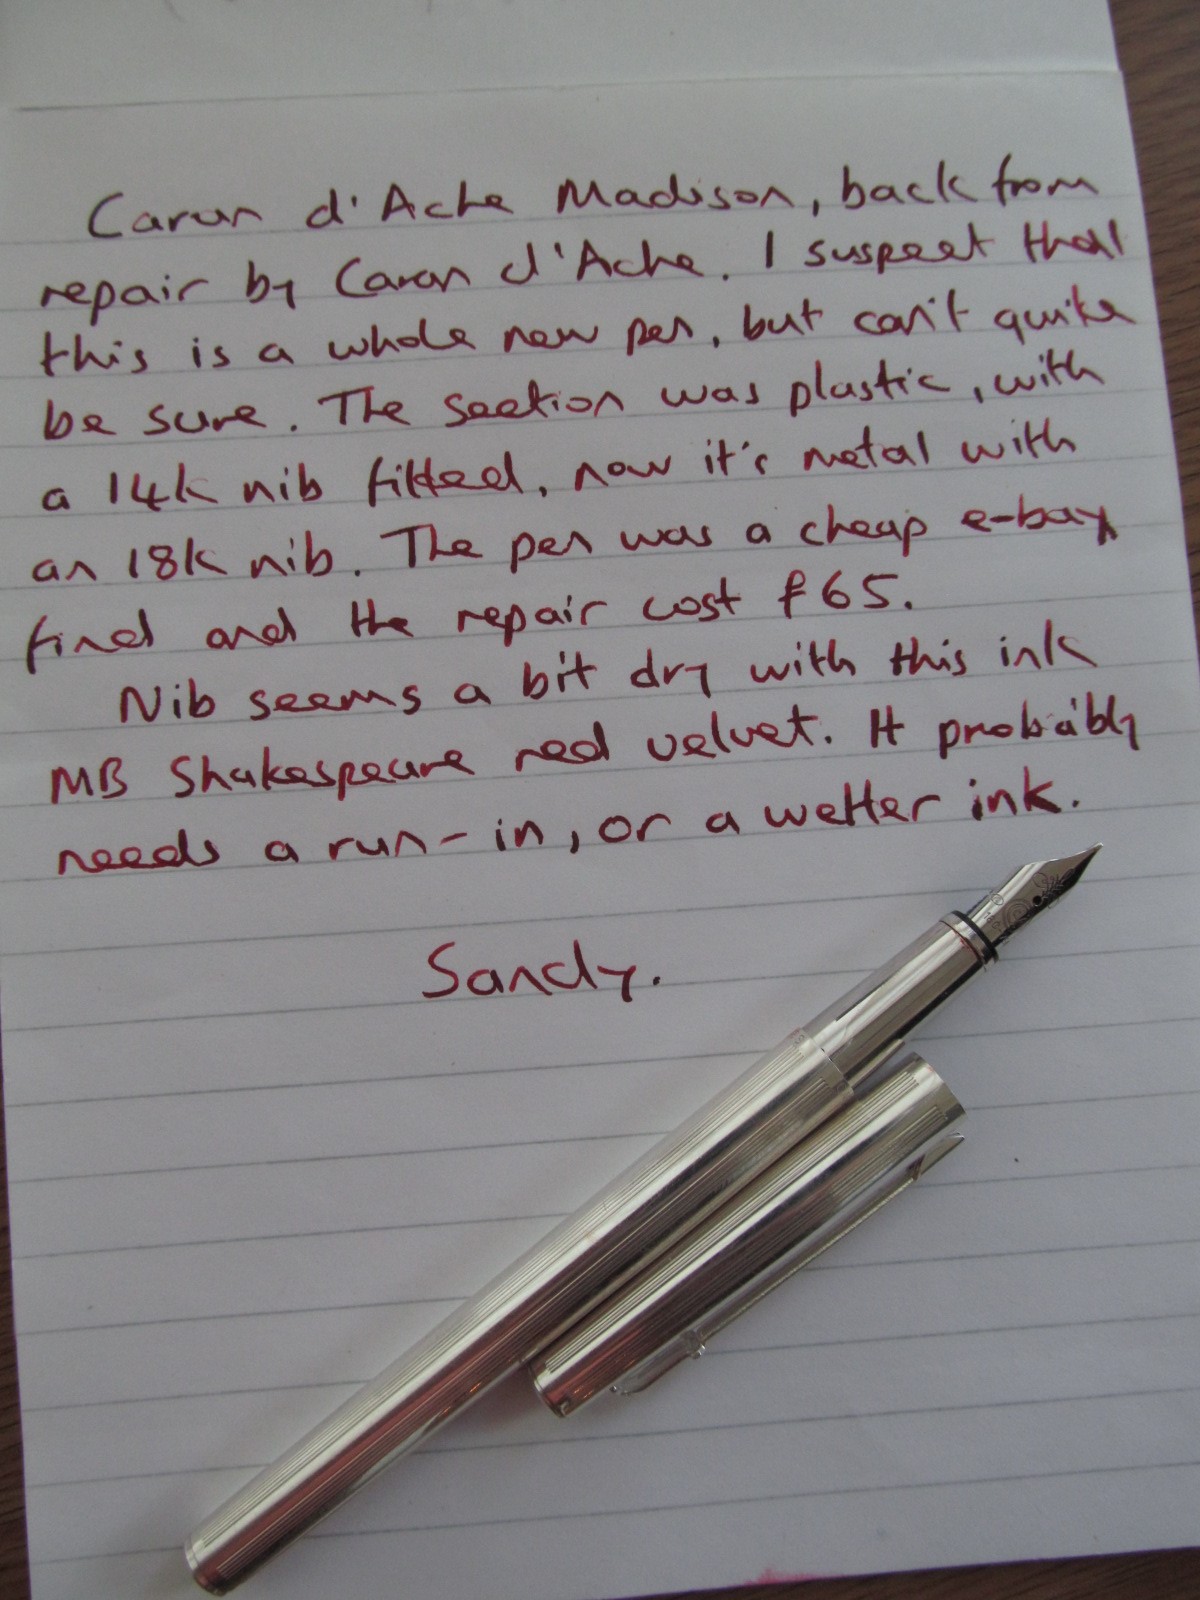 Caran d'Ache Madison, back from
repair by Caran d'Ache. I suspect that
this is a whole new pen, but can't quite
be sure. The section was plastic, with
a 14k nib fitted, now it's metal with
an 18k nib. The pen was a cheap e-bay
find and the repair cost £65.
Nib seems a bit dry with this ink
MB Shakespeare red velvet. It probably
needs a run-in, or a wetter ink.
Sandy.